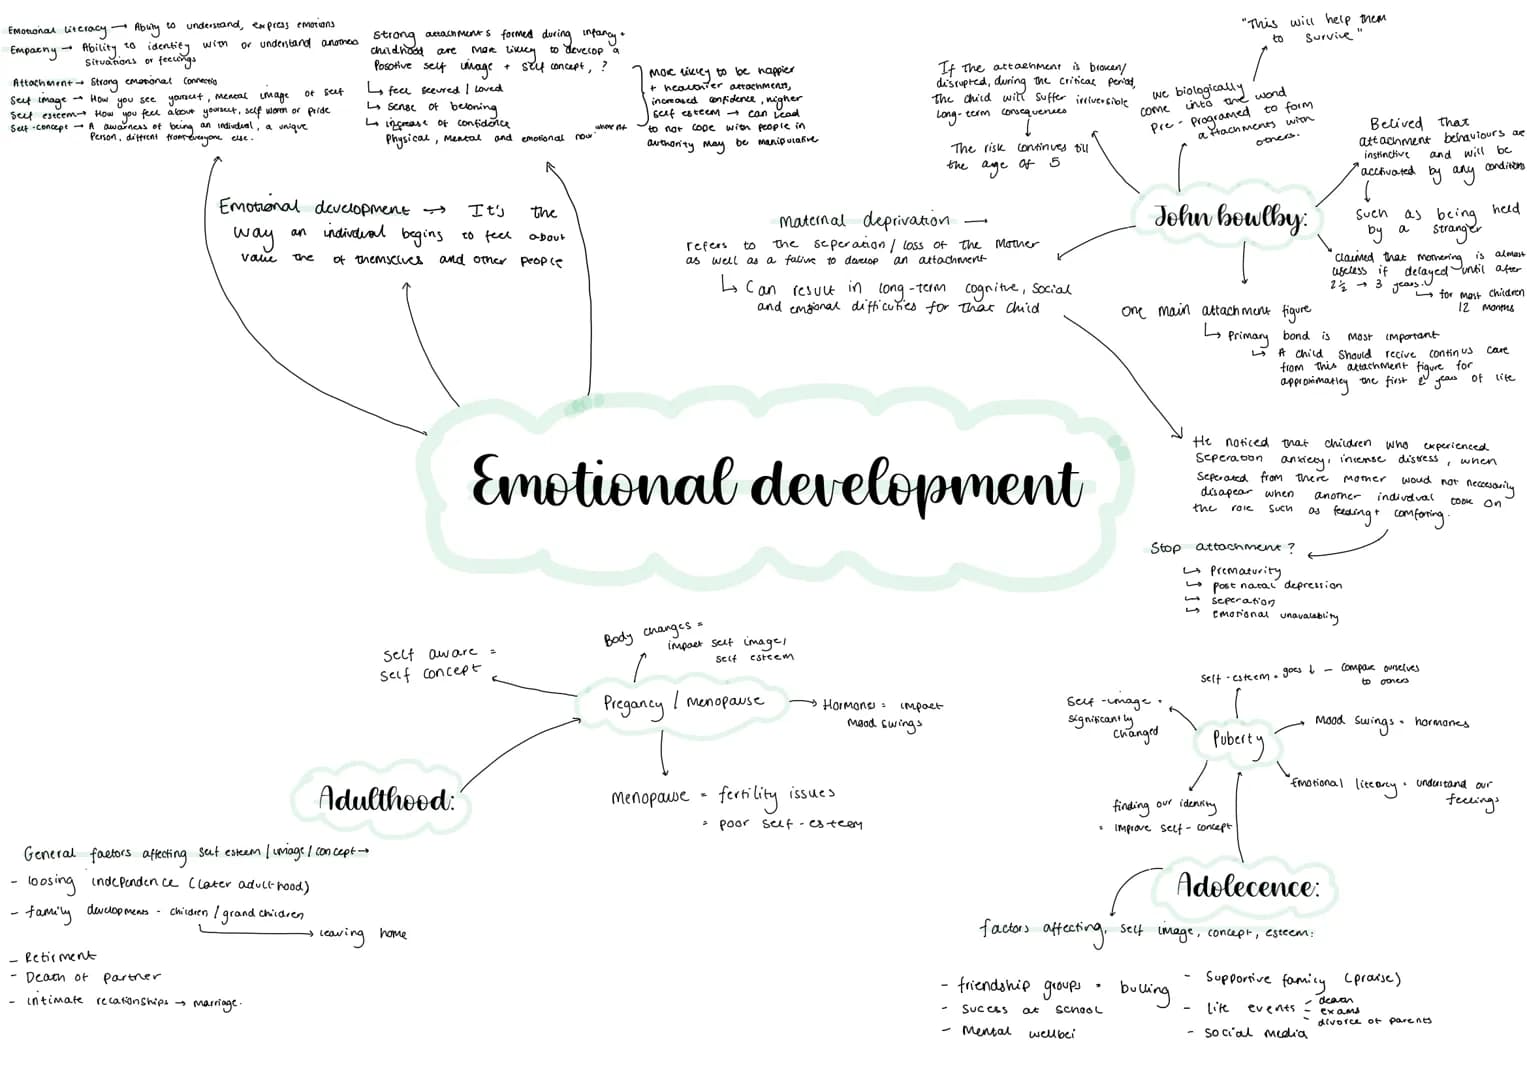 Emotional literacy → Ability to understand, express emotions
Empathy → Ability to identify with or understand anothers
situations or feelings
Attachment → Strong emotional connectio
Self image → How you see yourself, mental image of self
Self esteem → How you feel about yourself, self worth or pride
Self-concept → A awareness of being an individual, a unique
Person, diffrent from everyone else.
Strong attachments formed during infancy +
childhood are more likely to develop a
Posotive self image + self concept, ?
↳ feel secured / loved
↳ sense of beloning
↳ increase of confidence
Physical, mental and emotional now
more likely to be happier
+ healthier attachments,
increased confidence, higher
self esteem → can lead
to not cope with people in
authority may be manipulative
Emotional development → It's the
way an individual begins to feel about
value the of themselves and other people
Maternal deprivation —
refers to the seperation / loss of the mother
as well as a failure to develop an attachment
↳ Can result in long-term cognitive, social
and emotional difficulties for that child
John bowlby:
If the attachment is broken/
disrupted, during the critical period,
the child will suffer irriversible
long-term consequences
The risk continues till
the age of 5
"This will help them
to survive"
we biologically
come into the world
pre-programed to form
attachments with
others.
Belived that
attachment behaviours are
instinctive and will be
activated by any conditions
Such as being held
by a stranger
Claimed that mothering is almost
useless if delayed until after
2½ → 3 years.
↳ for most children
12 months
one main attachment figure
↳ Primary bond is most important
↳ A child should recive continus care
from this attachment figure for
approximatley the first 2 years of life
He noticed that children who experienced
seperation anxiety, intense distress, when
seperated from there mother would not necessarily
disapear when another individual took on
the role such as feeding + comforting.
Stop attachment?
↳ Prematurity
↳ post natal depression
↳ seperation
↳ emotional unavalablity
Emotional development
Self aware =
self concept
Body changes =
impact self image,
self esteem
Pregancy / menopause
Hormones = impact
mood swings
menopause = fertility issues
= poor self-esteem
Adulthood:
General factors affecting self esteem / image / concept →
- loosing independence (later adulthood)
- family developments - children / grand children
→ leaving home
- Retirment
- Death of partner
- intimate relationships → marriage.
self-esteem = goes ↓ — compare ourselves
to others
Self-image =
significantly
changed
Puberty
Mood swings = hormones
Emotional literacy = understand our
feelings
finding our identity
= improve self-concept
Adolecence:
factors affecting, self image, concept, esteem:
- friendship groups = bulling
- success at school
- Mental wellbei
- Supportive family (praise)
- life events - death
- exams
- divorce of parents
- social media